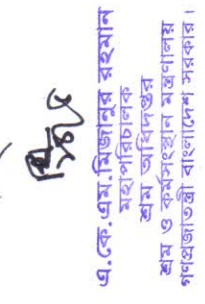 এ.কে.এম.মিজানুর রহমান
মহাপরিচালক
শ্রম অধিদপ্তর
শ্রম ও কর্মসংস্থান মন্ত্রণালয়
গণপ্রজাতন্ত্রী বাংলাদেশ সরকার।